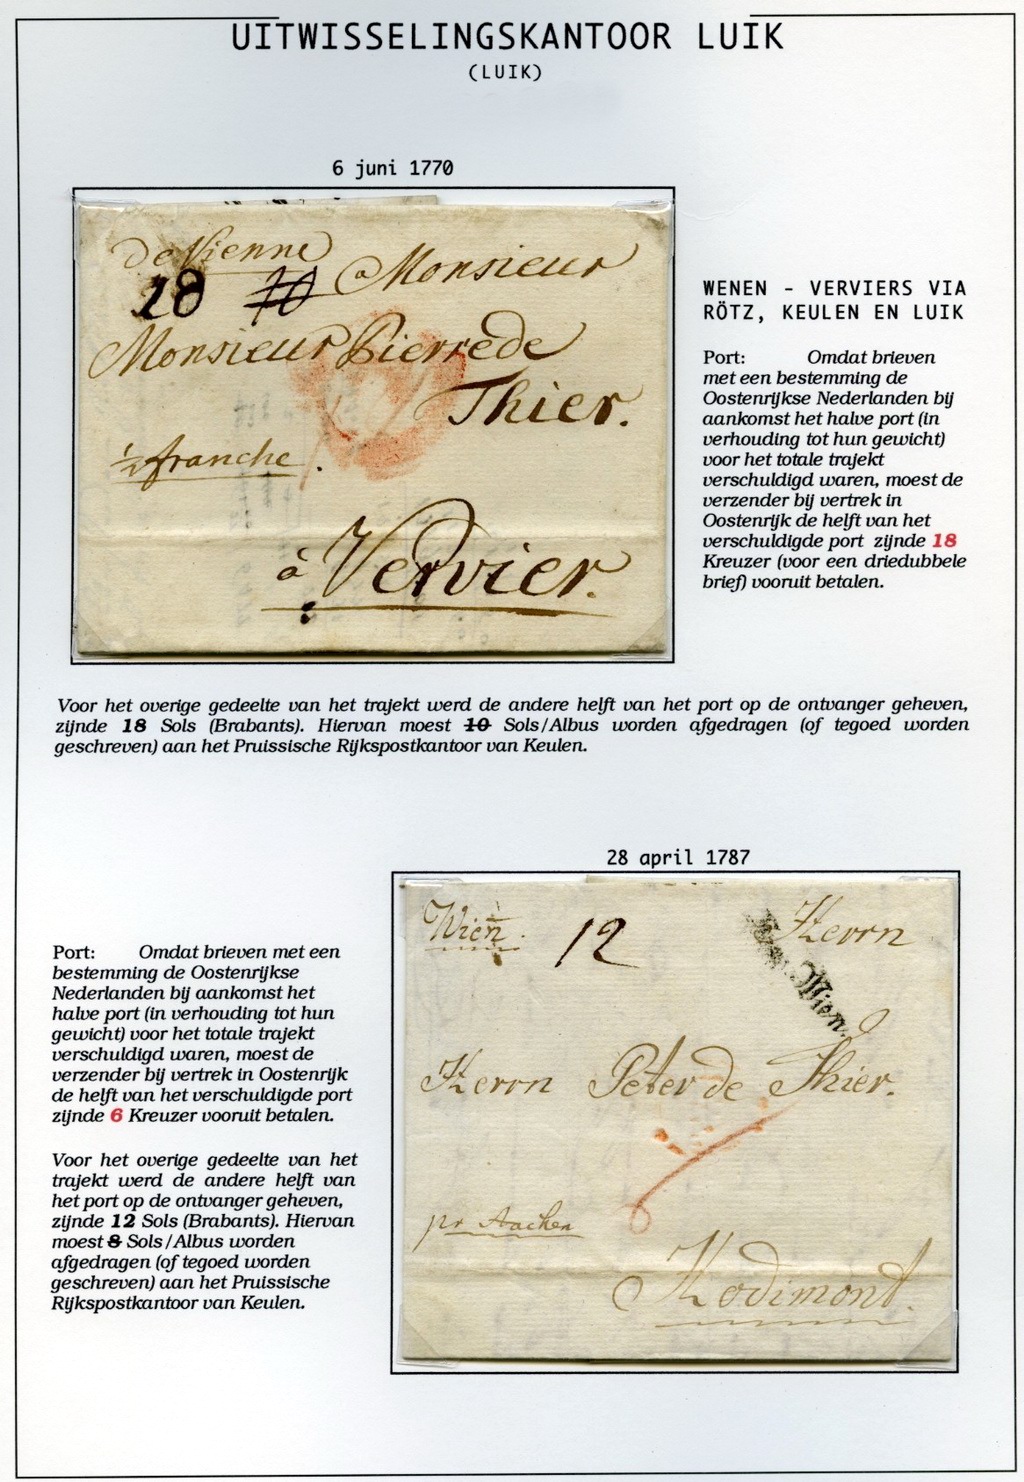 UITWISSELINGSKANTOOR LUIK
(LUIK)
6 juni 1770
de Vienne
18 10 a Monsieur
Monsieur Pierre de
Thier.
½ franche.
à Vervier.
WENEN - VERVIERS VIA
RÖTZ, KEULEN EN LUIK
Port: Omdat brieven
met een bestemming de
Oostenrijkse Nederlanden bij
aankomst het halve port (in
verhouding tot hun gewicht)
voor het totale trajekt
verschuldigd waren, moest de
verzender bij vertrek in
Oostenrijk de helft van het
verschuldigde port zijnde 18
Kreuzer (voor een driedubbele
brief) vooruit betalen.
Voor het overige gedeelte van het trajekt werd de andere helft van het port op de ontvanger geheven,
zijnde 18 Sols (Brabants). Hiervan moest 10 Sols/Albus worden afgedragen (of tegoed worden
geschreven) aan het Pruissische Rijkspostkantoor van Keulen.
28 april 1787
Port: Omdat brieven met een
bestemming de Oostenrijkse
Nederlanden bij aankomst het
halve port (in verhouding tot hun
gewicht) voor het totale trajekt
verschuldigd waren, moest de
verzender bij vertrek in Oostenrijk
de helft van het verschuldigde port
zijnde 6 Kreuzer vooruit betalen.
Voor het overige gedeelte van het
trajekt werd de andere helft van
het port op de ontvanger geheven,
zijnde 12 Sols (Brabants). Hiervan
moest 8 Sols/Albus worden
afgedragen (of tegoed worden
geschreven) aan het Pruissische
Rijkspostkantoor van Keulen.
Wien. 12 Herrn
Wien.
Herrn Peter de Thier.
6
pr Aachen
Hodimont.